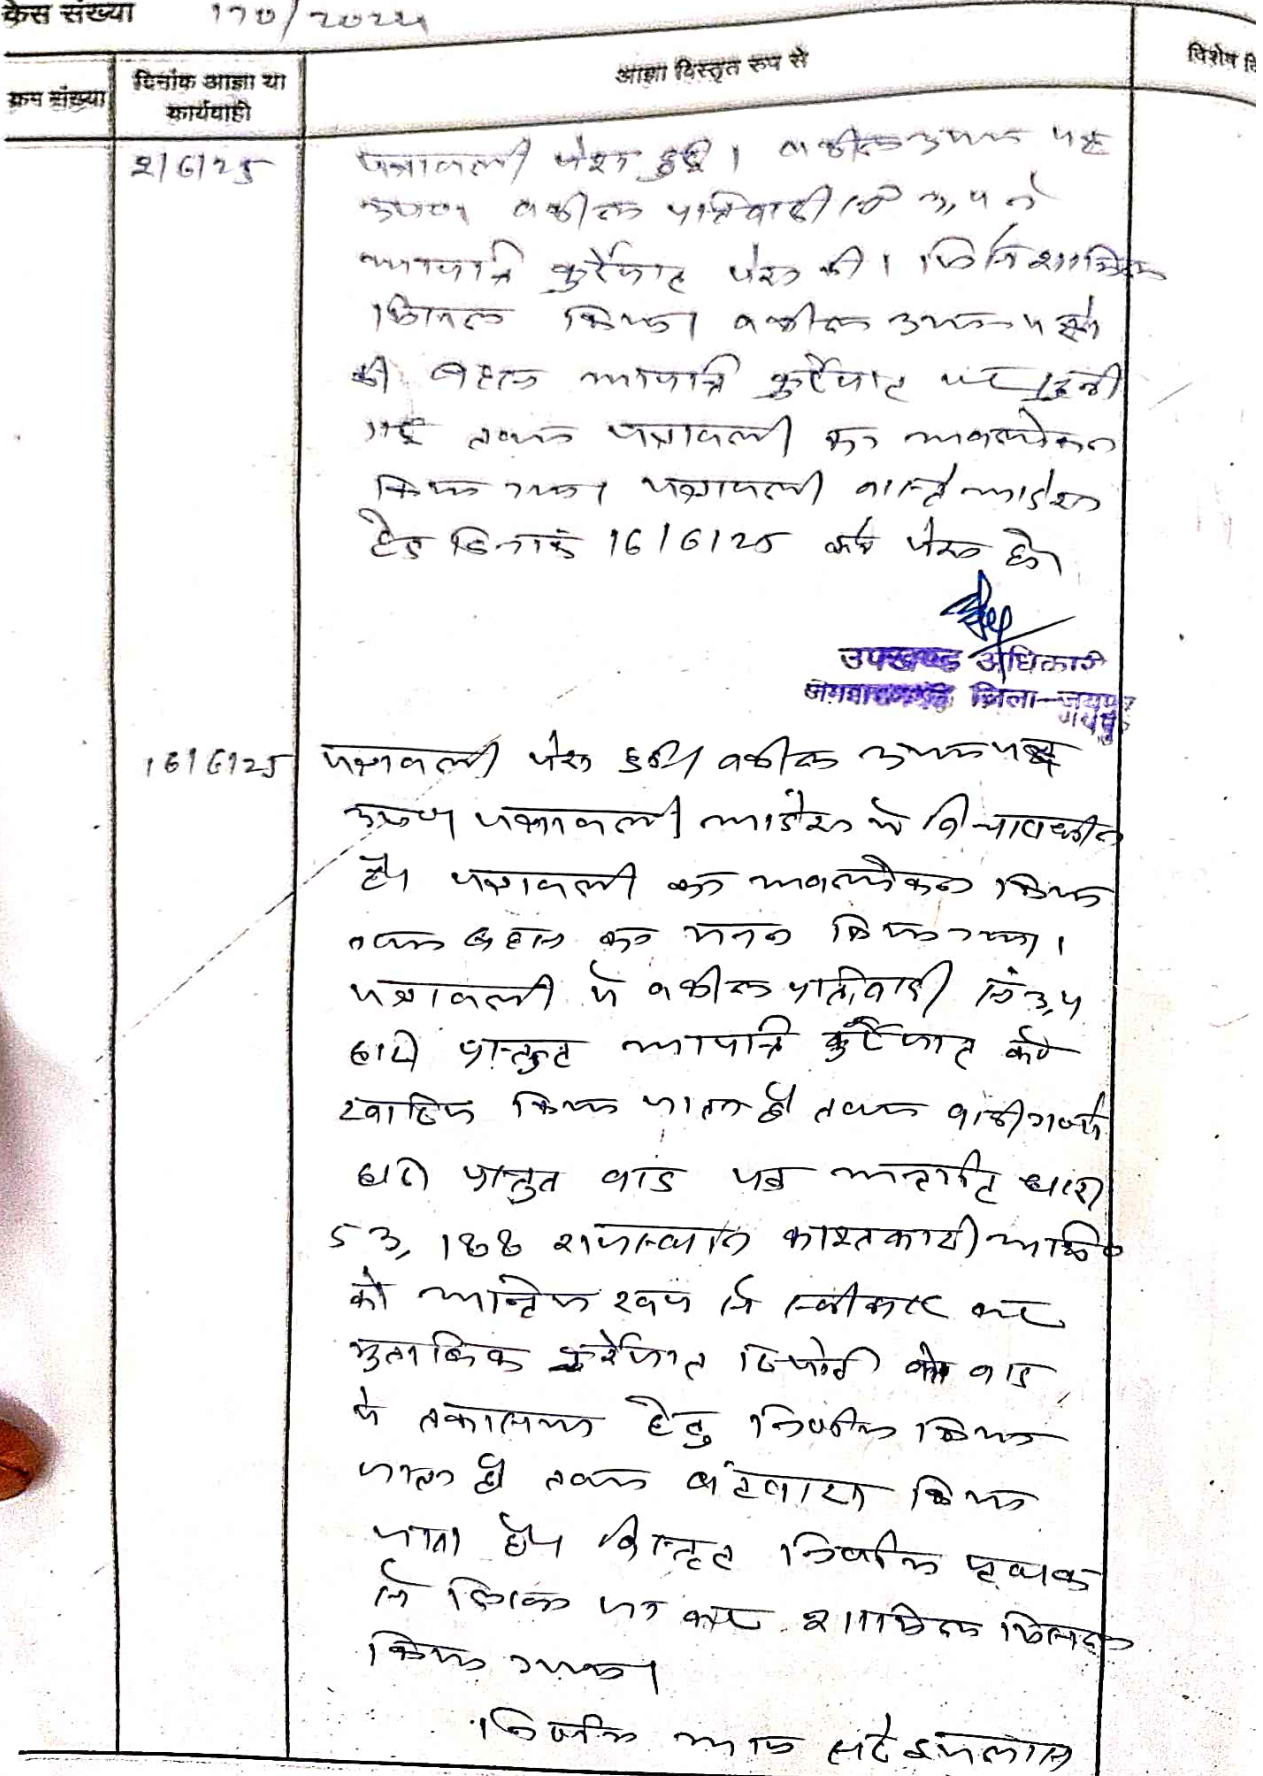 केस संख्या 170/2024
क्रम संख्या दिनांक आज्ञा या कार्यवाही आज्ञा विस्तृत रुप से विशेष
2/6/25 पत्रावली पेश हुई। वकील उभय पक्ष
उपस्थित वकील प्रतिवादी सं 3, 4 ने
आपत्ति कुर्रेजात पेश की।
शामिल मिसल किया। वकील उभय पक्षो
की बहस आपत्ति कुर्रेजात पर सुनी
गई तथा पत्रावली का अवलोकन
किया गया। पत्रावली वास्ते आदेश
हेतु दिनांक 16/6/25 को पेश हो।
उपखण्ड अधिकारी
जिला-जयपुर
16/6/25 पत्रावली पेश हुई। वकील उभय पक्ष
उप० पत्रावली आदेश मे विचाराधीन
है। पत्रावली का अवलोकन किया
तथा बहस का मनन किया गया।
पत्रावली मे वकील प्रतिवादी सं 3, 4
द्वारा प्रस्तुत आपत्ति कुर्रेजात को
खारिज किया जाता है तथा वादीगण
द्वारा प्रस्तुत वाद पत्र अन्तर्गत धारा
53, 188 राजस्थान काश्तकारी अधि०
को अन्तिम रूप से स्वीकार कर
मुताबिक कुर्रेजात रिपोर्ट को वाद
मे तकासमा हेतु निर्णीत किया
जाता है तथा बंटवारा किया
जाता है। विस्तृत निर्णय पृथक
से लिखा जा कर शामिल मिसल
किया गया।
निर्णय आज सरे इजलास